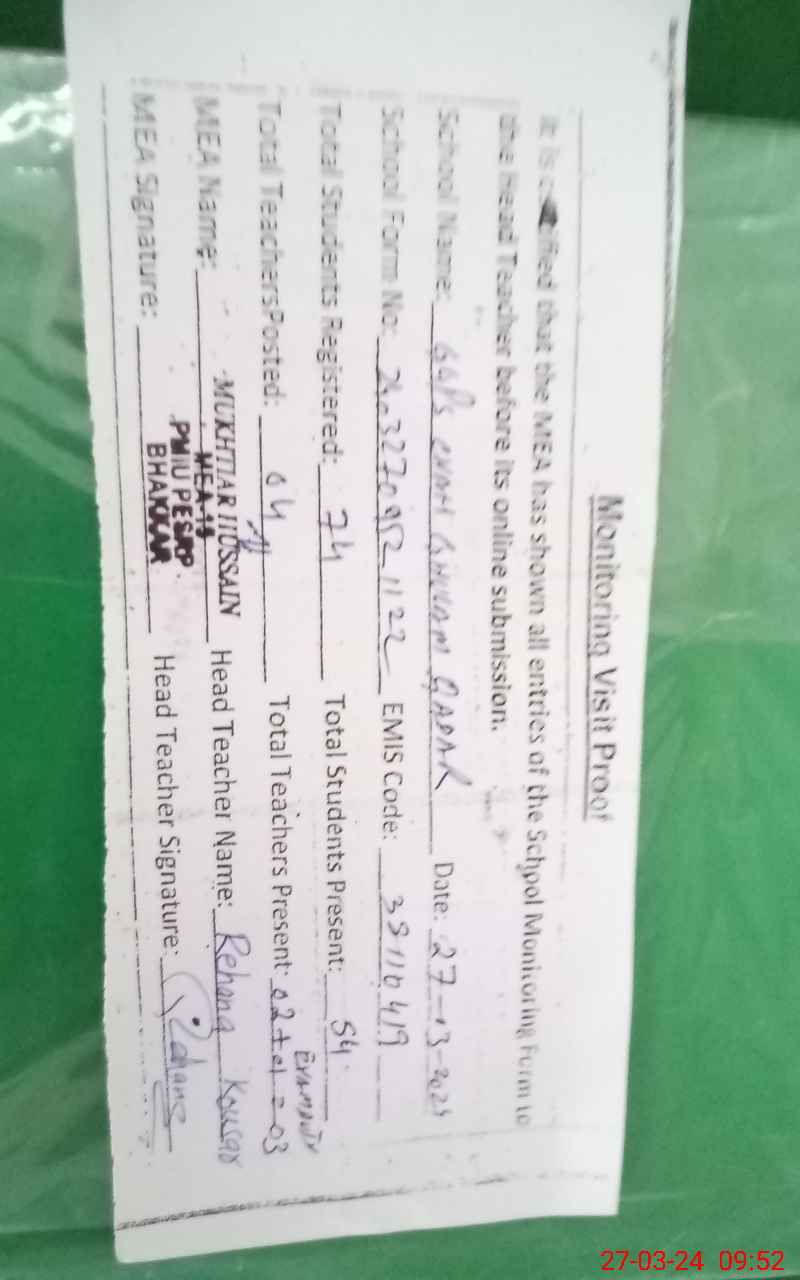 Monitoring Visit Proof
It is certified that the MEA has shown all entries of the School Monitoring Form to
the Head Teacher before its online submission.
School Name: GGPS CHAH GHULAM QADAR Date: 27-03-2024
School Form No: EMIS Code: 38110419
Total Students Registered: 74 Total Students Present: 54
Total TeachersPosted: 04 Total Teachers Present: 02+01=03
MEA Name: MUKHTIAR HUSSAIN Head Teacher Name: Rehana Kousar
MEA-15
PMIU PESRP
BHAKKAR
MEA Signature: Head Teacher Signature: Rehana
27-03-24 09:52